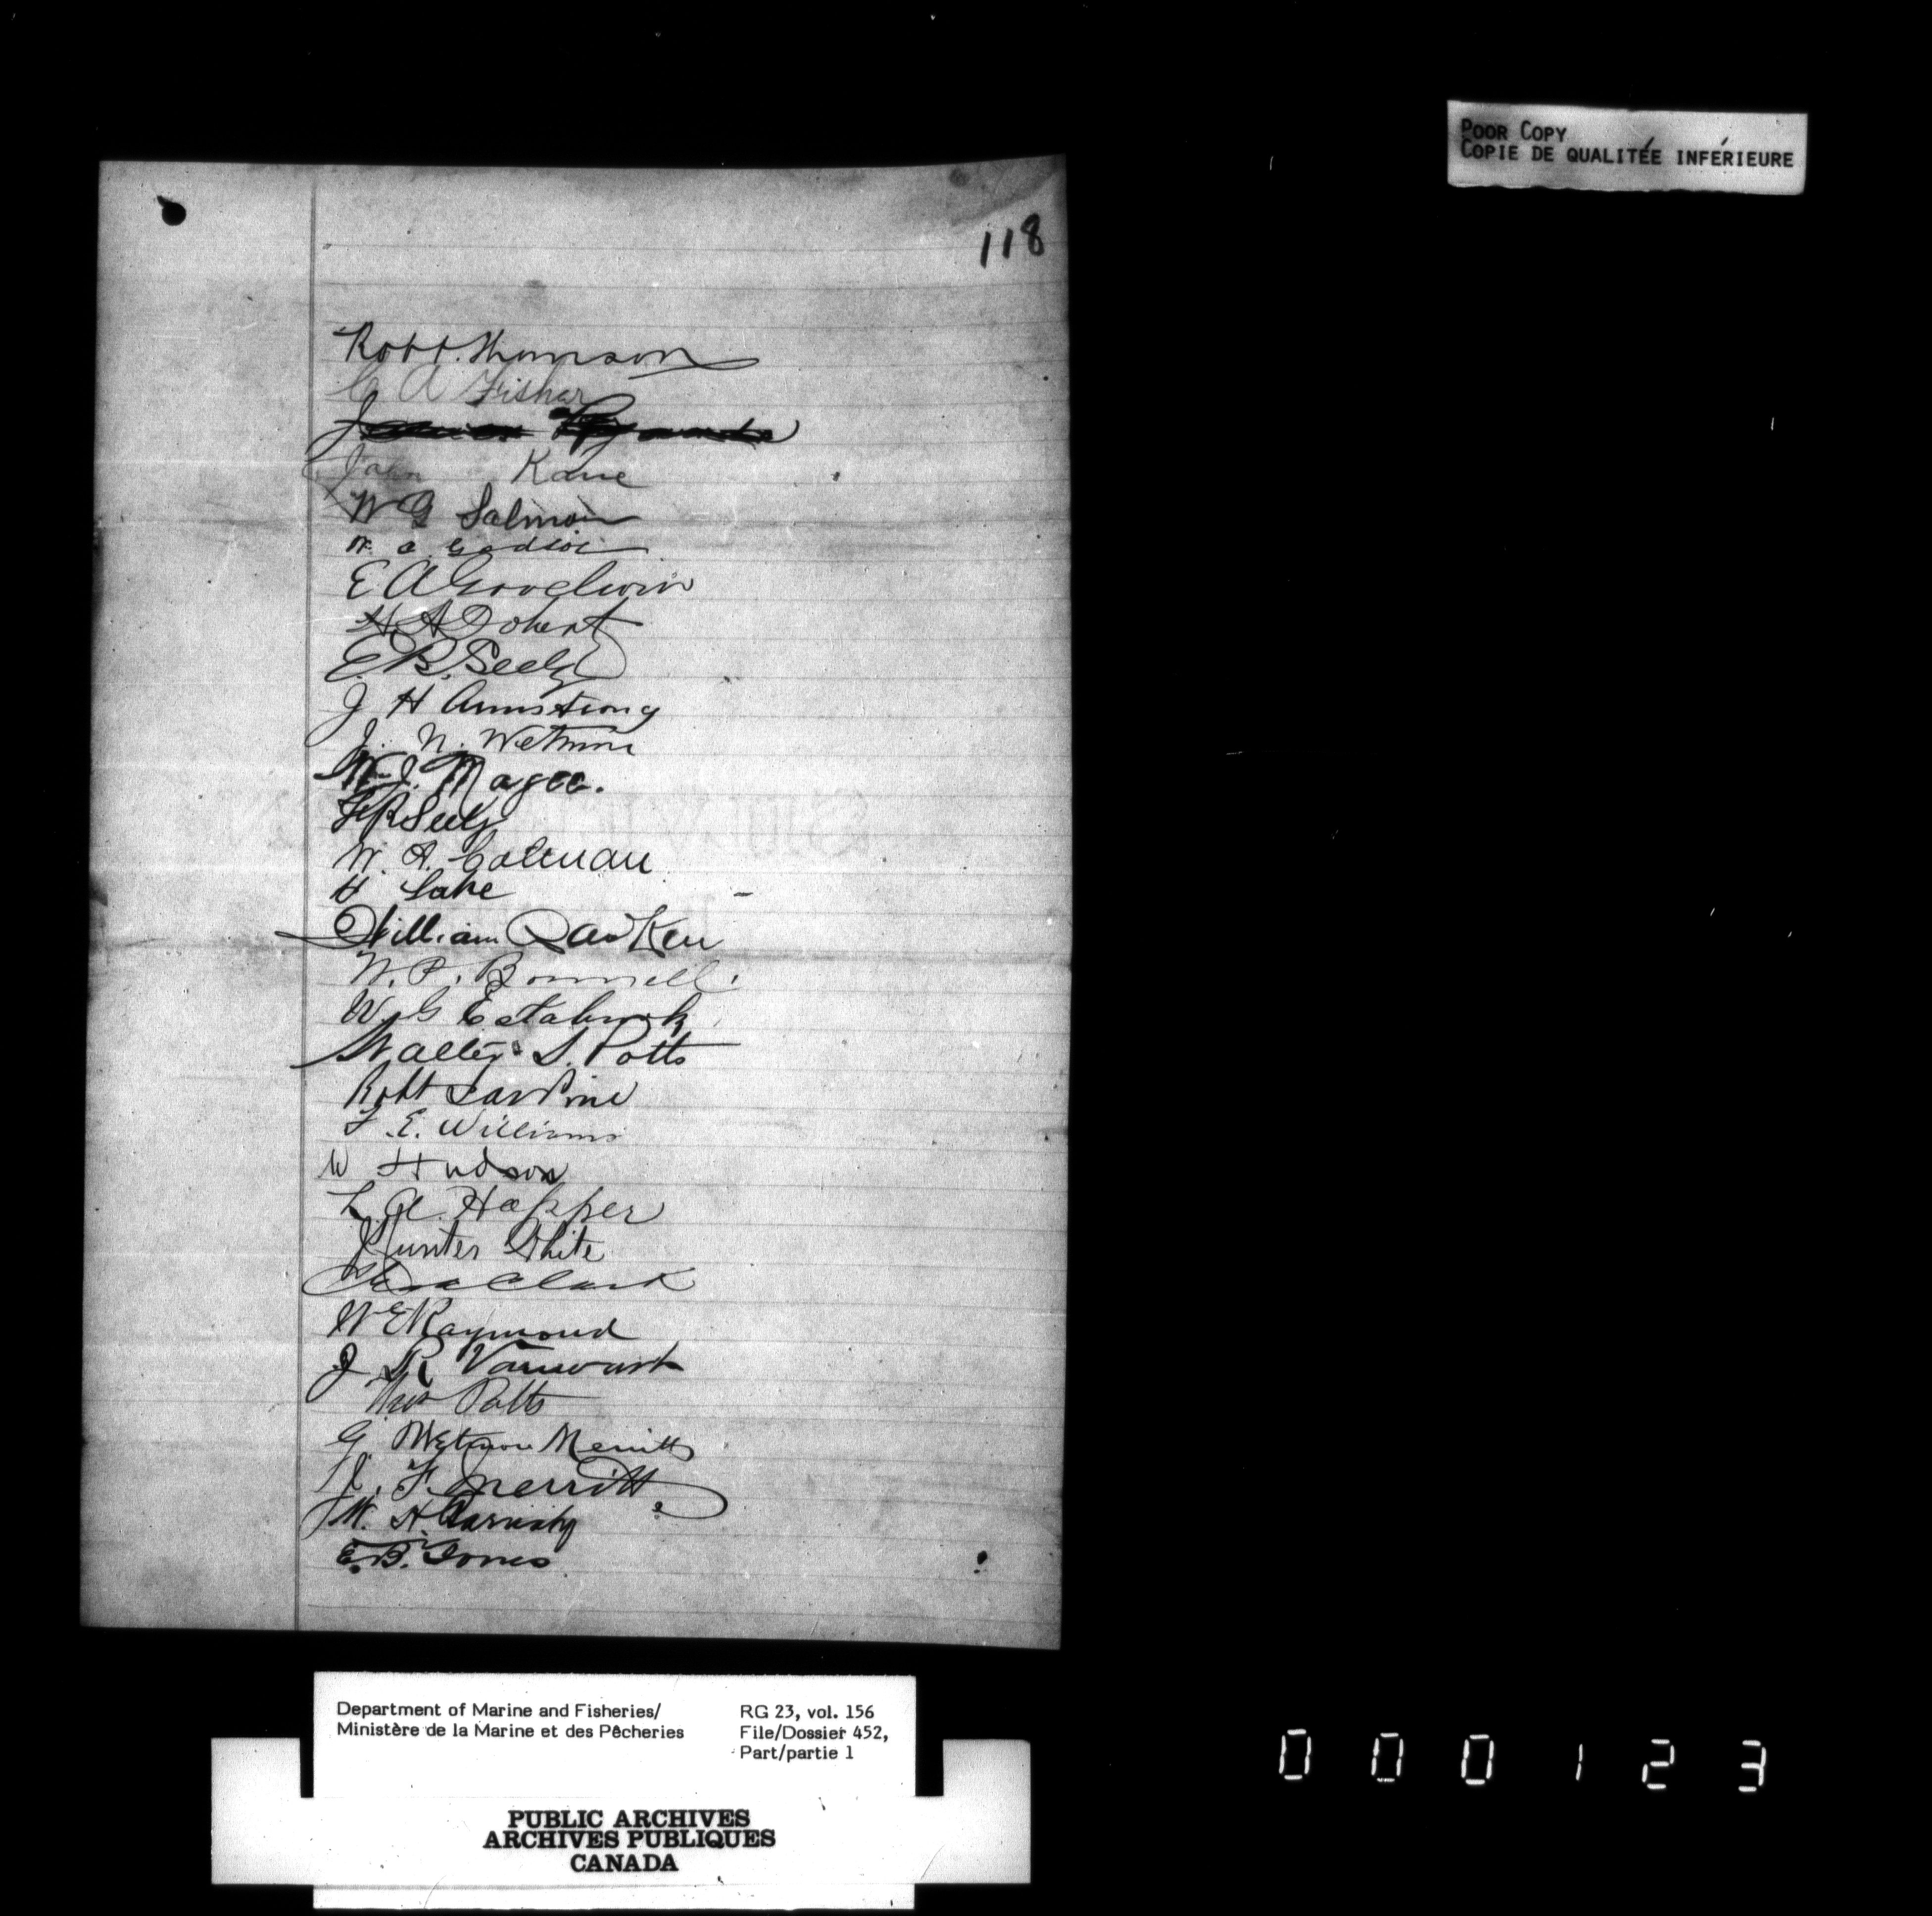 POOR COPY
COPIE DE QUALITÉE INFÉRIEURE
118
Robt. Thomson
A Fisher
John Kane
W G Salmon
E A Goodwin
H A Dohert
E. B. Seely
J H Armstrong
J. N. Wetmore
W. J. Magee.
F R Seely
W. A. Coleman
H Lake
William
W. P. Bonnell
W G Estabrook
Walter S. Potts
Robt Jardine
F. E. Williams
W Hudson
L. A. Hopper
Hunter White
Clark
W E Raymond
J R Vanwart
Potts
G Wetmore Merritt
F. Merritt
W. H.
E. B. Jones
Department of Marine and Fisheries/
Ministère de la Marine et des Pêcheries
RG 23, vol. 156
File/Dossier 452,
Part/partie 1
PUBLIC ARCHIVES
ARCHIVES PUBLIQUES
CANADA
000123